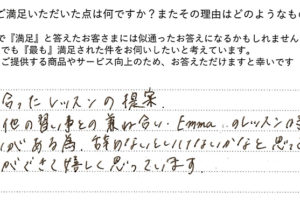 ご満足いただいた点は何ですか？またその理由はどのようなもの
で『満足』と答えたお客さまには似通ったお答えになるかもしれません
でも『最も』満足された件をお伺いしたいと考えています。
ご提供する商品やサービス向上のため、お答えただけますと幸いです
合ったレッスンの提案.
他の習い事との兼ね合い、Emma のレッスンは
がある為、辞めないといけないかなと思って
ができて嬉しく思っています.